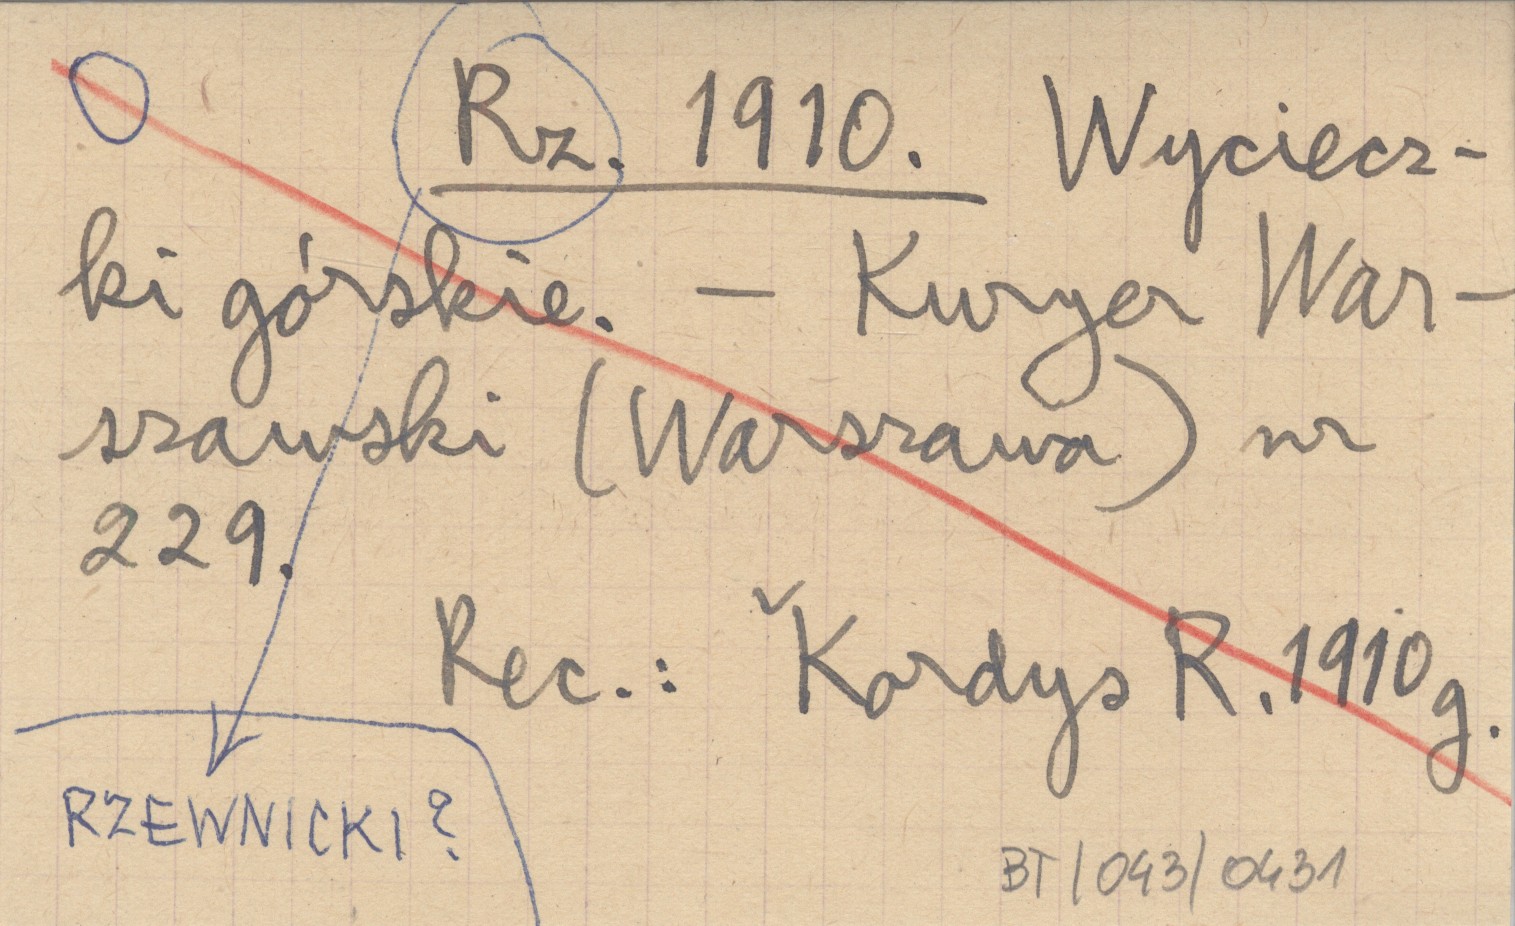 Rz. 1910. Wyciecz-
ki górskie. – Kuryer War-
szawski (Warszawa) nr
229.
Rec.: ˇKordys R. 1910 g.
RZEWNICKI?
BT/043/0431